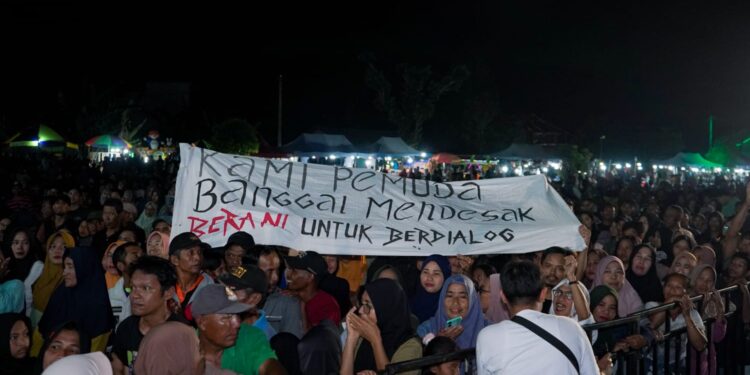 KAMI PEMUDA
BANGGAI MENDESAK
BERANI UNTUK BERDIALOG